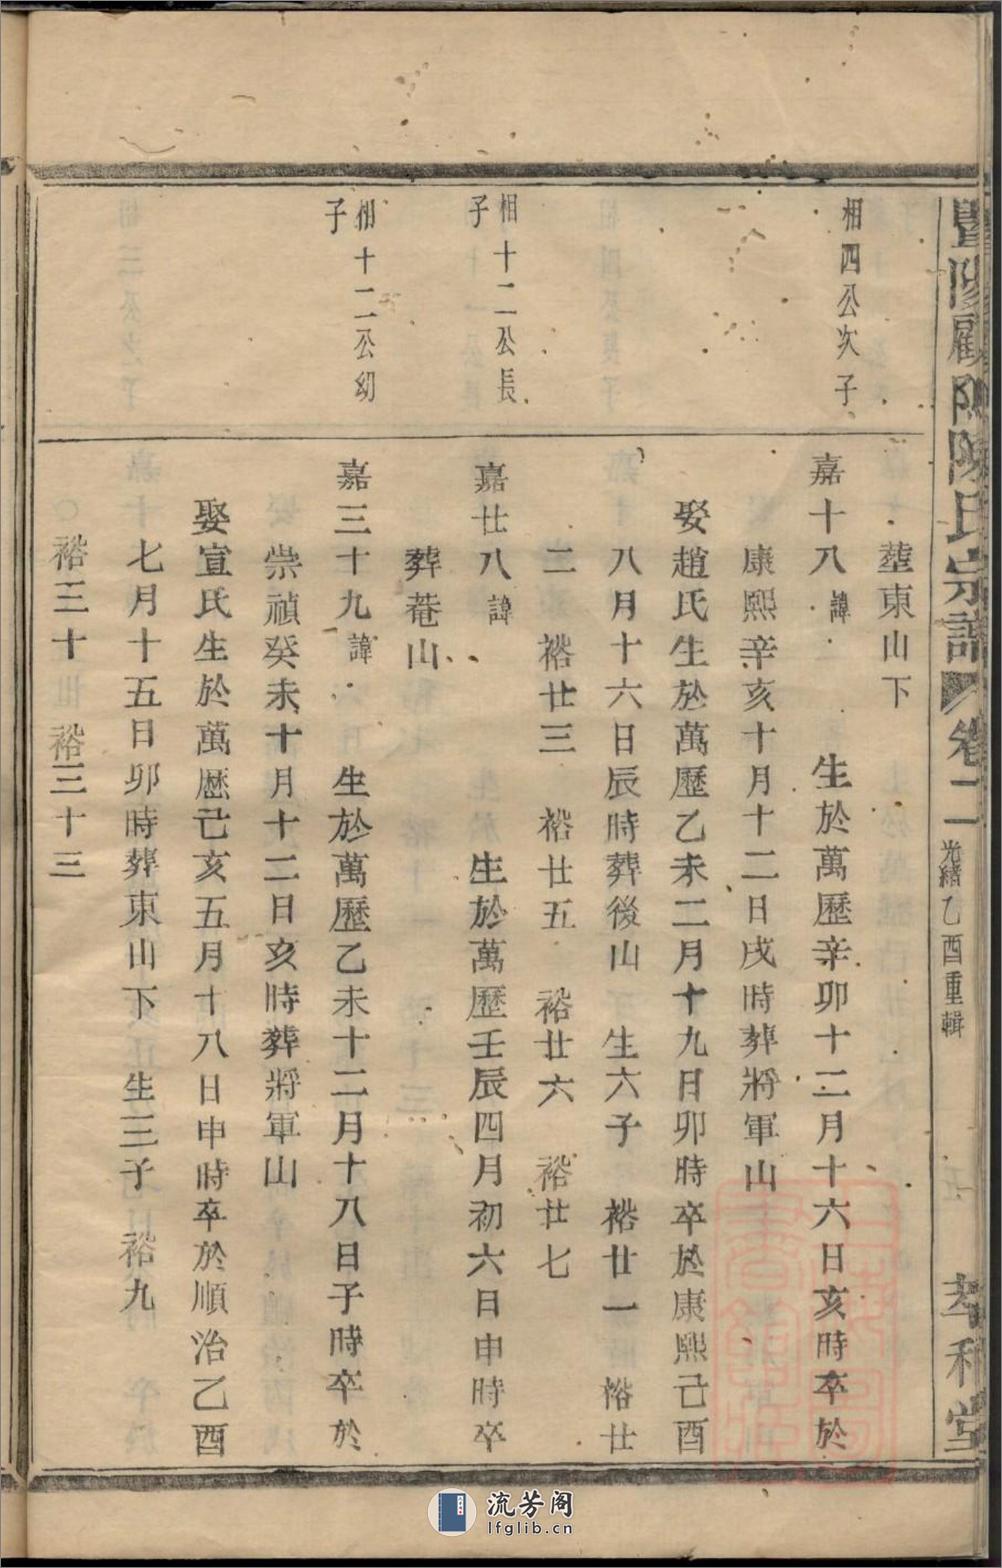 暨陽顧陌陳氏宗譜 卷二 光緒乙酉重輯 萃和堂
塟東山下
相四公次子
嘉十八諱 生於萬歷辛卯十二月十六日亥時卒於
康熙辛亥十月十二日戌時葬將軍山
娶趙氏生於萬歷乙未二月十九日卯時卒於康熙己酉
八月十六日辰時葬後山 生六子 裕廿一 裕廿
二 裕廿三 裕廿五 裕廿六 裕廿七
相十二公長
子
嘉廿八諱 生於萬歷壬辰四月初六日申時卒
葬菴山
相十二公幼
子
嘉三十九諱 生於萬歷乙未十二月十八日子時卒於
崇禎癸未十月十二日亥時葬將軍山
娶宣氏生於萬歷己亥五月十八日申時卒於順治乙酉
七月十五日卯時葬東山下 生三子 裕九
裕三十 裕三十三
流芳阁
lfglib.cn